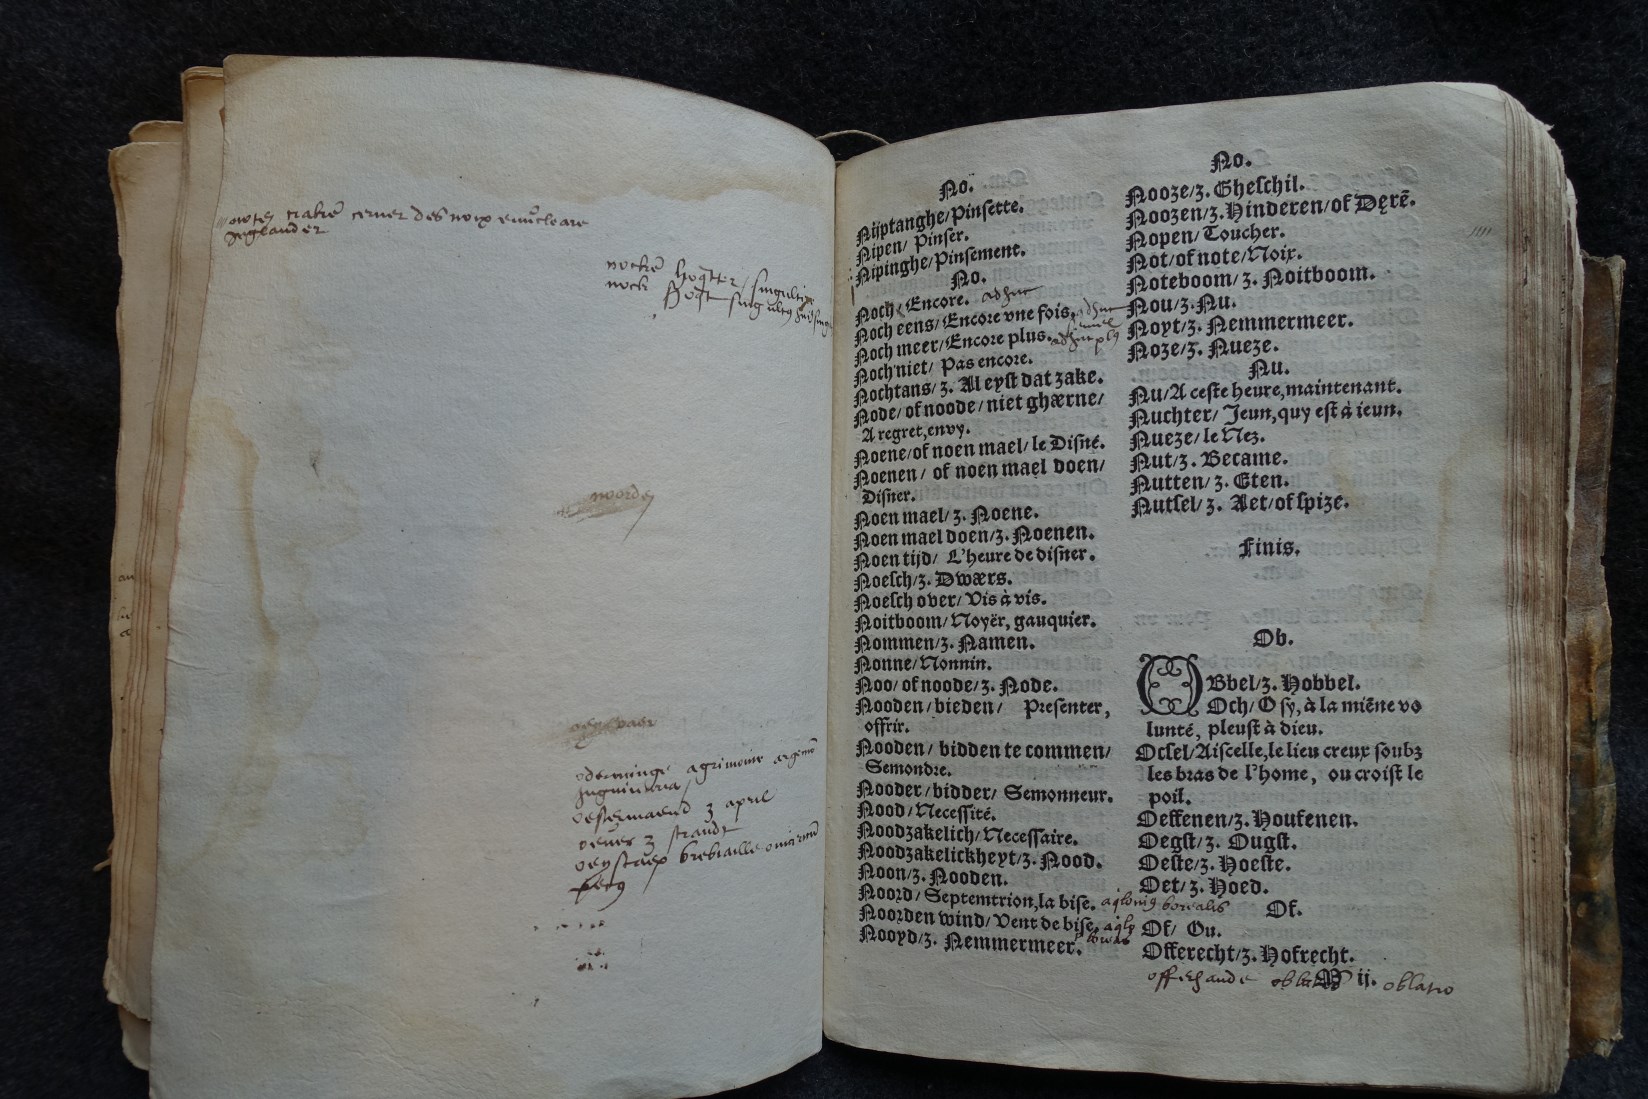 noten craken cerner des noix enucleare
Juglander
nocken hoqter / singultire
nock hoqt singultus
noorden
oderminge agrimoine
oestermaend z april
oever z strandt
oey scaep brebiaille
pecus
No.
Nijptanghe/Pinsette.
Nipen/ Pinser.
Nipinghe/Pinsement.
No.
Noch/Encore. adhuc
Noch eens/Encore vne fois, adhuc semel
Noch meer/Encore plus. adhuc plus
Noch niet/ Pas encore.
Nochtans/z. Al eyst dat zake.
Node/of noode/niet ghærne/
A regret,envy.
Noene/of noen mael/le Disné.
Noenen/ of noen mael doen/
Disner.
Noen mael/z. Noene.
Noen mael doen/z. Noenen.
Noen tijd/ L'heure de disner.
Noesch/z. Dwærs.
Noesch over/ Vis à vis.
Noitboom/Noyér, gauquier.
Nommen/z. Namen.
Nonne/Nonnin.
Noo/ of noode/z. Node.
Nooden/bieden/ Presenter,
offrir.
Nooden/ bidden te commen/
Semondre.
Nooder/bidder/ Semonneur.
Nood/Necessité.
Noodzakelich/Necessaire.
Noodzakelickheyt/z. Nood.
Noon/z. Nooden.
Noord/Septemtrion,la bise. aqlonius borealis
Noorden wind/Vent de bise,
Nooyd/z. Nemmermeer.
No.
Nooze/z. Gheschil.
Noozen/z. Hinderen/of Derē.
Nopen/Toucher.
Not/of note/Noix.
Noteboom/z. Noitboom.
Nou/z. Nu.
Noyt/z. Nemmermeer.
Noze/z. Nueze.
Nu.
Nu/A ceste heure,maintenant.
Nuchter/ Jeun,quy est à ieun.
Nueze/le Nez.
Nut/z. Became.
Nutten/z. Eten.
Nutsel/z. Aet/of spize.
Finis.
Ob.
OBbel/z. Hobbel.
Och/O sy,à la miēne vo
lunté, pleust à dieu.
Ocsel/Aiscelle,le lieu creux soubz
les bras de l'home, ou croist le
poil.
Oeffenen/z. Houfenen.
Oegst/z. Ougst.
Oeste/z. Hoeste.
Oet/z. Hoed.
Of.
Of/ Ou.
Offerecht/z. Hofrecht.
offerhande M ij. oblatio